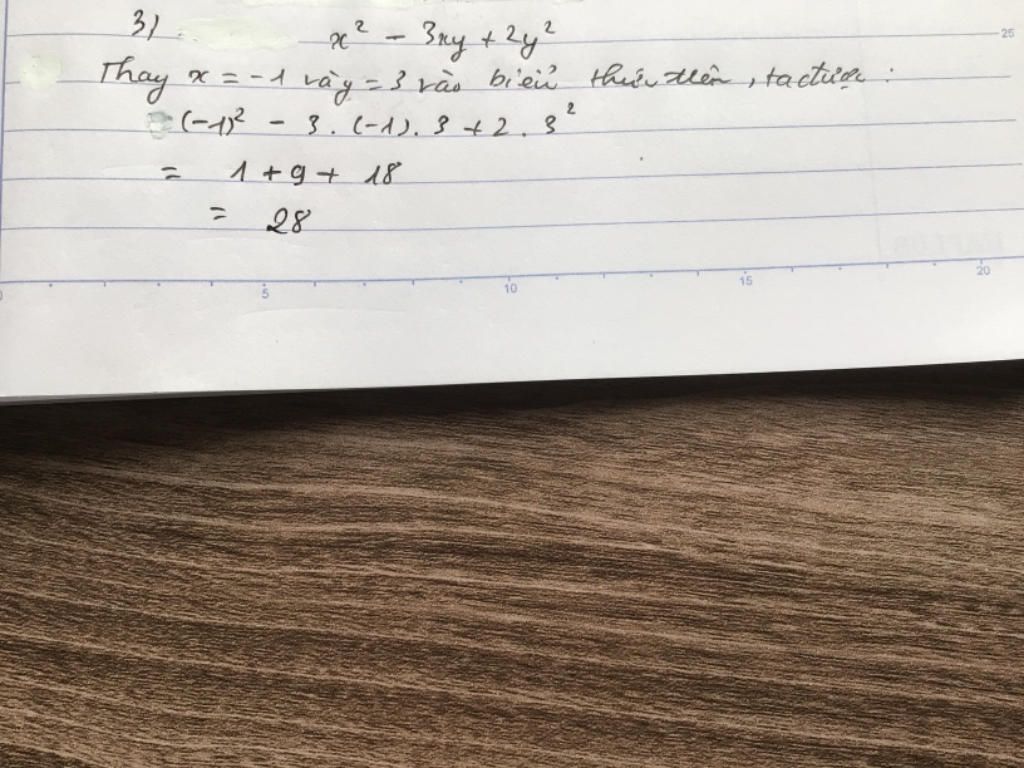 3)
x² - 3xy + 2y²
25
Thay x = -1 và y = 3 vào biểu thức trên, ta được :
(-1)² - 3. (-1). 3 + 2. 3²
= 1 + 9 + 18
= 28
5 10 15 20